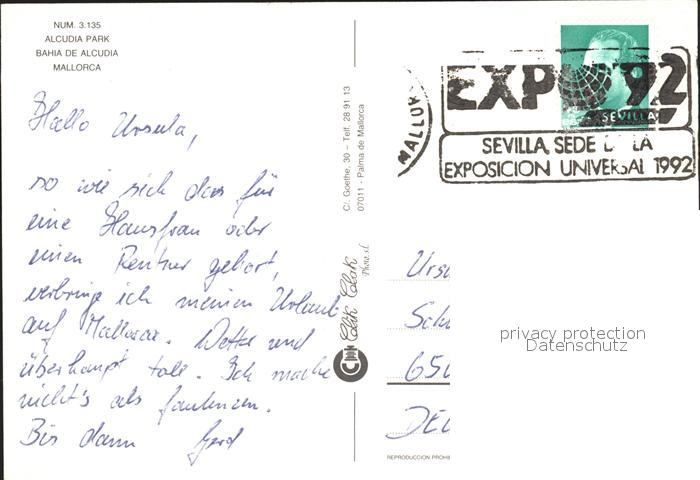 NUM. 3.135
ALCUDIA PARK
BAHIA DE ALCUDIA
MALLORCA
Hallo Ursula,
so wie sich das für
eine Hausfrau oder
einen Rentner gehört,
verbringe ich meinen Urlaub
auf Mallorca. Wetter und
überhaupt toll. Ich mache
nicht's als faulenzen.
Bis dann Gerd
C/. Goethe, 30 – Telf. 28 91 13
07011 - Palma de Mallorca
Clik Clak
Photo, s.l.
MALLOR
EXPO '92
SEVILLA
SEVILLA, SEDE DE LA
EXPOSICION UNIVERSAL 1992
Ursu
Sch
650
DEU
privacy protection
Datenschutz
REPRODUCCION PROHIB